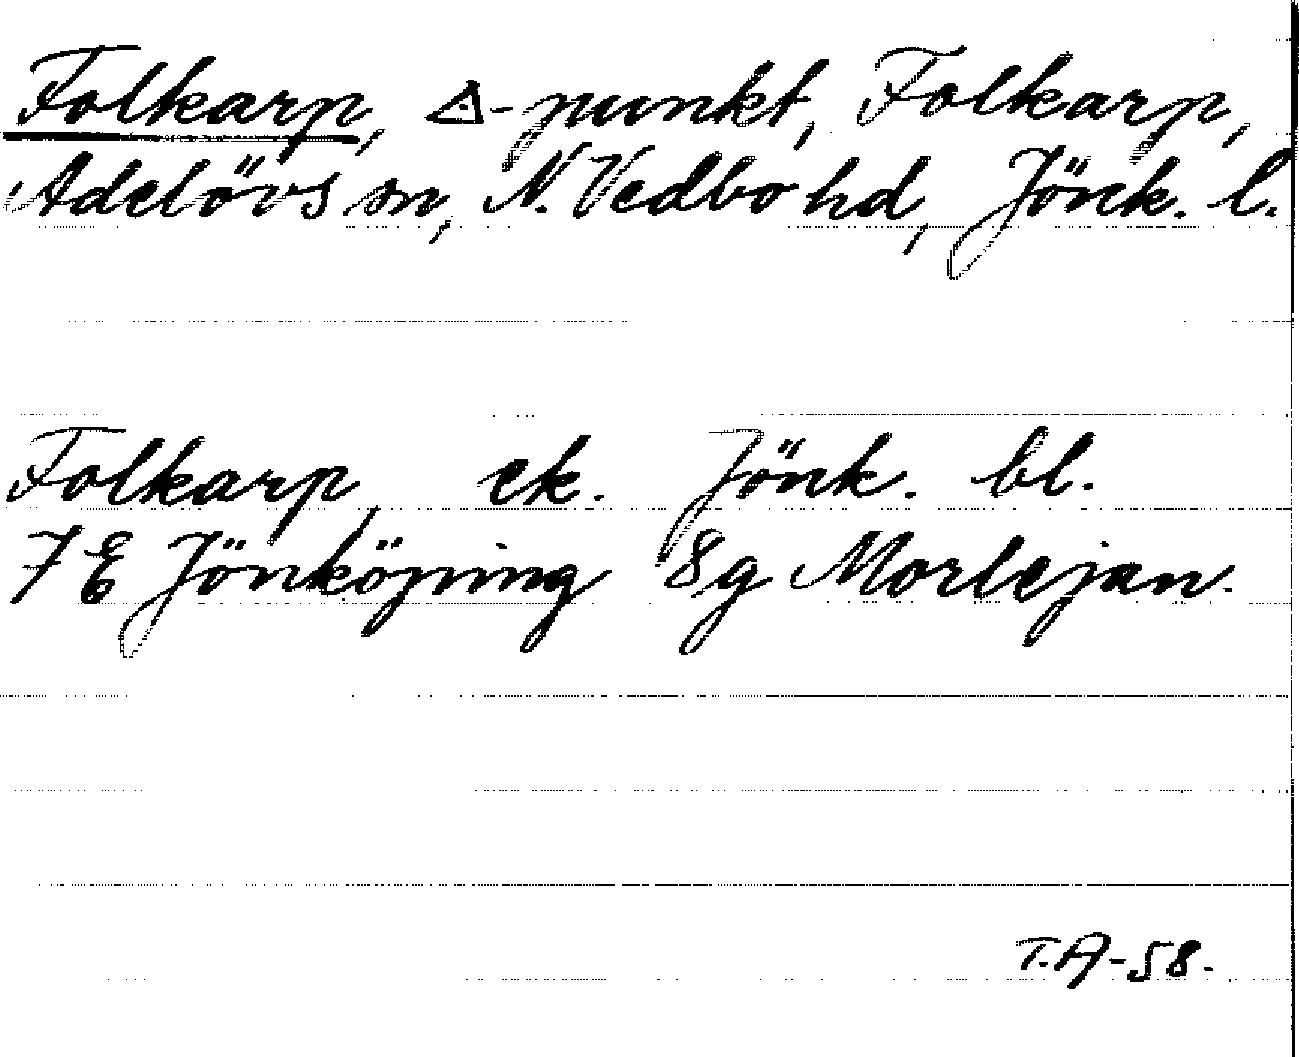 Folkarp, △-punkt, Folkarp,
Adelövs sn, N. Vedbo hd, Jönk. l.
Folkarp, ek. Jönk. bl.
7E Jönköping 8g Morlejan.
T.A-58.